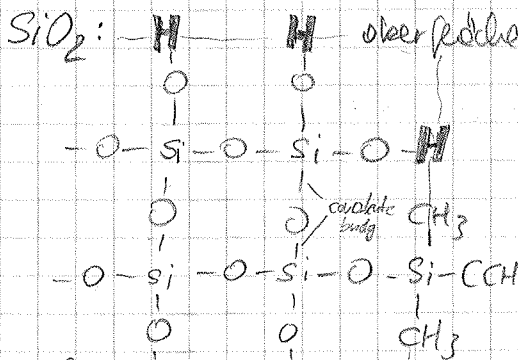 SiO2: — H — H — oberfläche
O O
– O – Si – O – Si – O – H
O O covalate CH3
bindg
– O – Si – O – Si – O – Si – CCH
O O CH3